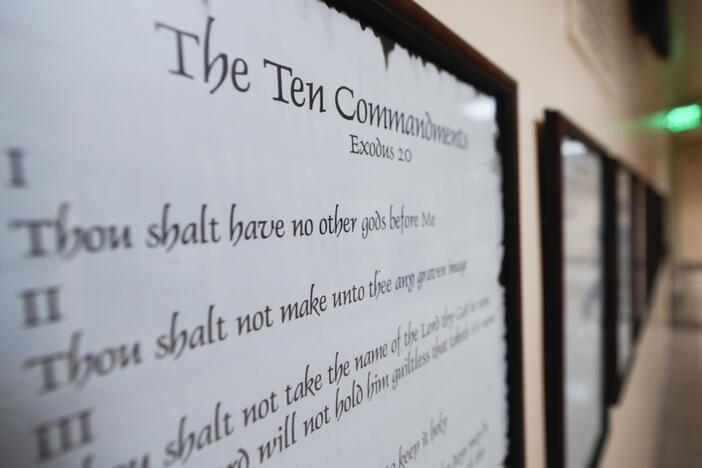 The Ten Commandments
Exodus 20
I
Thou shalt have no other gods before Me
II
Thou shalt not make unto thee any graven image
III
Thou shalt not take the name of the Lord thy God in vain,
Lord will not hold him guiltless that taketh His name
to keep it holy